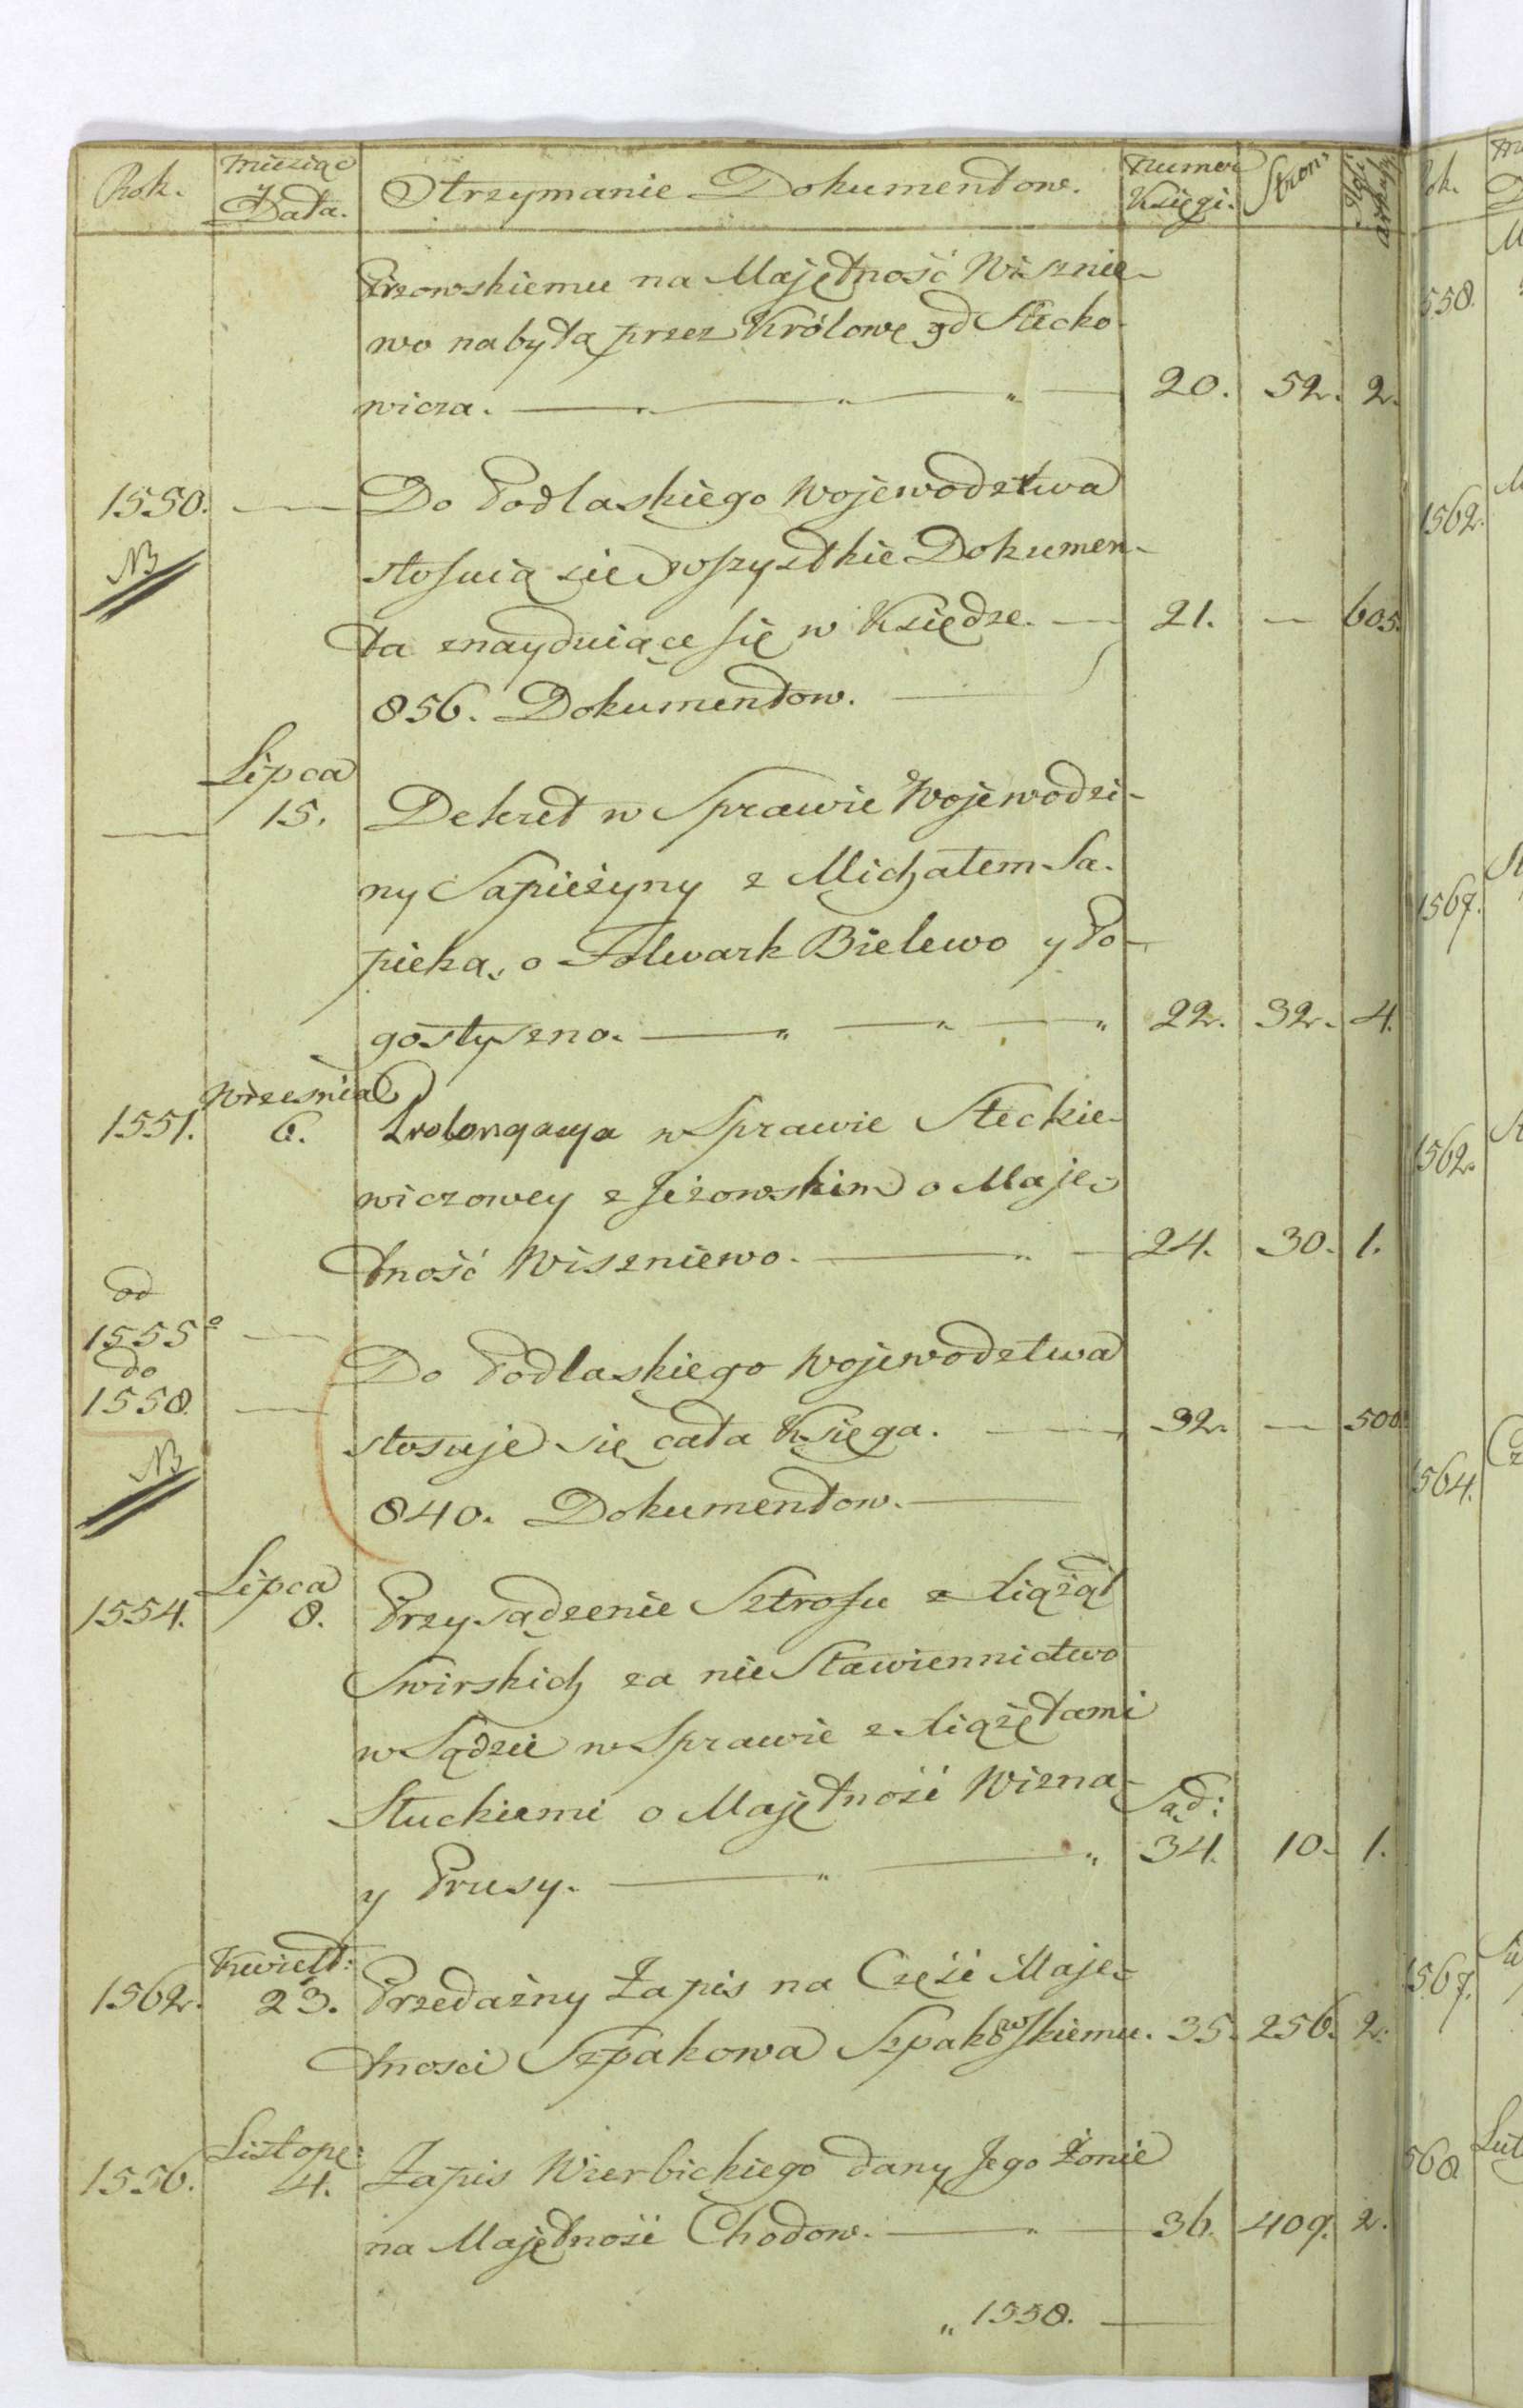 Rok. Miesiąc y Data. Otrzymanie Dokumentow. Numer Księgi. Stron: Ilość arkuszy
na Majętność Wisznie-
wo nabytą przez Królowę od Stecko-
wicza. 20. 52. 2.
1550. Do Podlaskiego Wojewodztwa
NB stosuią się wszystkie Dokumen-
ta znayduiące się w Księdze. 21. — 605.
856. Dokumentow.
Lipca
15. Dekret w Sprawie Wojewodzi-
ny Sapieżyny z Michałem Sa-
piehą, o Folwark Bielewo y Po-
gostyszno. 22. 32. 4.
Wrzesnia
1551. 6. Prolongacya w Sprawie Steckie-
wiczowey z Jeżowskim o Maję-
tność Wiszniewo. 24. 30. 1.
od
1555º
do Do Podlaskiego Wojewodztwa
1558. stosuje się cała Księga. 32. — 500.
NB 840. Dokumentow.
Lipca
1554. 8. Przysądzenie Sztrofu z Xiążąt
Swirskich za nie Stawiennictwo
w Sądzie w Sprawie z Xiążętami
Słuckiemi o Majętność Wizna Sąd:
y Prusy. 34. 10. 1.
Kwiet:
1562. 23. Przedażny Zapis na Część Maję-
tnosci Szpakowa Szpakowskiemu. 35. 256. 2.
Listopa:
1556. 4. Zapis Wierbickiego dany Jego Żonie
na Majętność Chodow. 36. 409. 2.
„1558.
558.
1562.
1567.
1562.
1564.
1567.
568